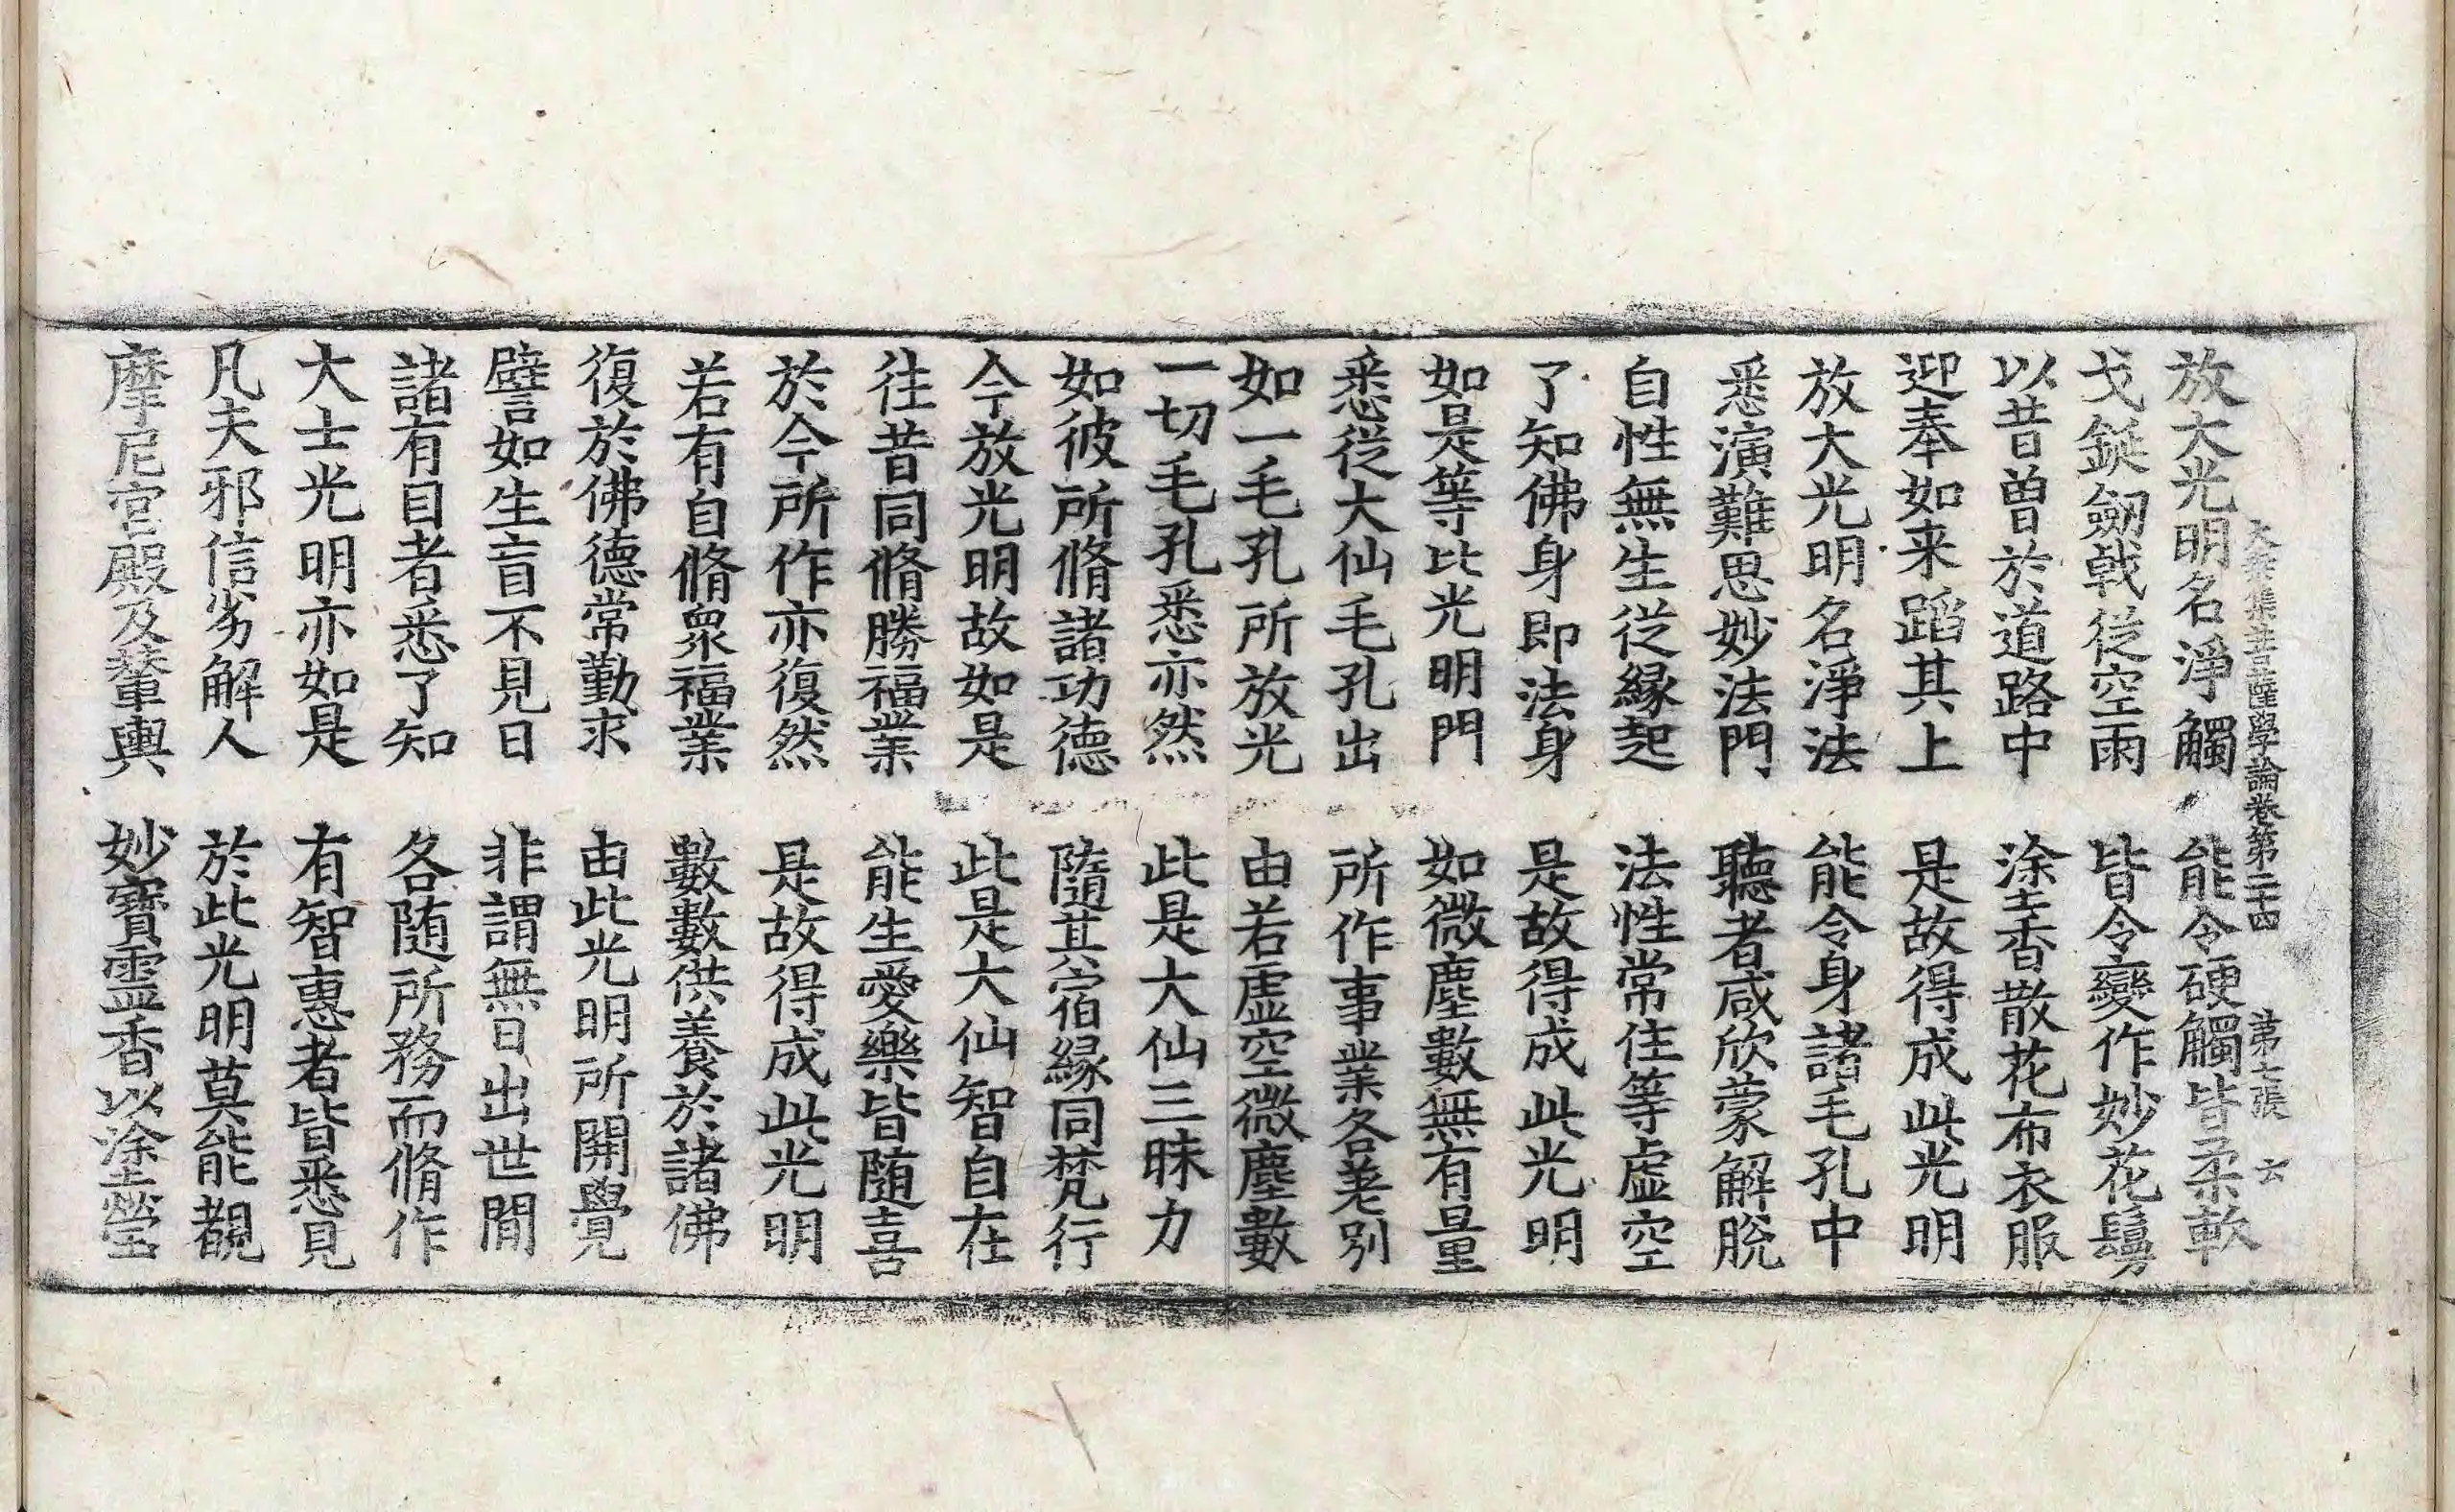 大乘集菩薩學論卷第二十四 第七張 云
放大光明名淨觸 能令硬觸皆柔軟
戈鋋劒戟從空雨 皆令變作妙花鬘
以昔曽於道路中 塗香散花布衣服
迎奉如来蹈其上 是故得成此光明
放大光明名淨法 能令身諸毛孔中
悉演難思妙法門 聽者咸欣蒙解脫
自性無生從緣起 法性常住等虛空
了知佛身即法身 是故得成此光明
如是等比光明門 如微塵數無有量
悉從大仙毛孔出 所作事業各差別
如一毛孔所放光 由若虛空微塵數
一切毛孔悉亦然 此是大仙三昧力
如彼所脩諸功德 隨其宿緣同梵行
今放光明故如是 此是大仙智自在
往昔同脩勝福業 能生愛樂皆随喜
於今所作亦復然 是故得成此光明
若有自脩衆福業 數數供養於諸佛
復於佛德常勤求 由此光明所開覺
譬如生盲不見日 非謂無日出世間
諸有目者悉了知 各随所務而脩作
大士光明亦如是 有智惠者皆悉見
凡夫邪信劣解人 於此光明莫能覩
摩尼宮殿及輦輿 妙寶靈香以塗瑩